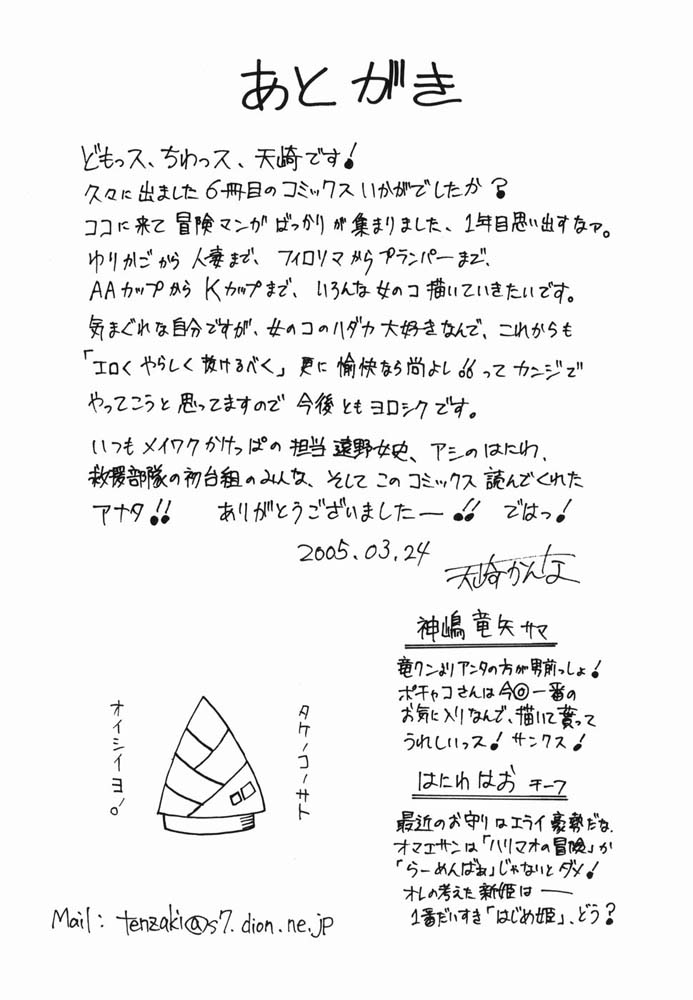 あとがき
どもっス、ちわっス、天崎です!
久々に出ました6冊目のコミックスいかがでしたか?
ココに来て冒険マンガばっかりが集まりました、1年目思い出すなァ。
ゆりかごから人妻まで、フィロリマからプランパーまで、
AAカップからKカップまで、いろんな女のコ描いていきたいです。
気まぐれな自分ですが、女のコのハダカ大好きなんで、これからも
「エロくやらしく抜けるべく」更に愉快なら尚よし!!ってカンジで
やってこうと思ってますので今後ともヨロシクです。
いつもメイワクかけっぱの担当遠野女史、アシのはにわ、
救援部隊の初台組のみんな、そしてこのコミックス読んでくれた
アナタ!! ありがとうございましたー!! ではっ!
2005.03.24
天崎かんな
神嶋竜矢サマ
竜クンよりアンタの方が男前っしょ!
ポチャコさんは今◎一番の
お気に入りなんで、描いて貰って
うれしいっス!サンクス!
タケノコノサト
オイシイヨ。
はにわはお チーフ
最近のお守りはエライ豪勢だな.
オマエサンは「ハリマオの冒険」か
「らーめんばぁ」じゃないとダメ!
オレの考えた新姫は――
1番だいすき「はじめ姫」、どう?
Mail: tenzaki@s7.dion.ne.jp